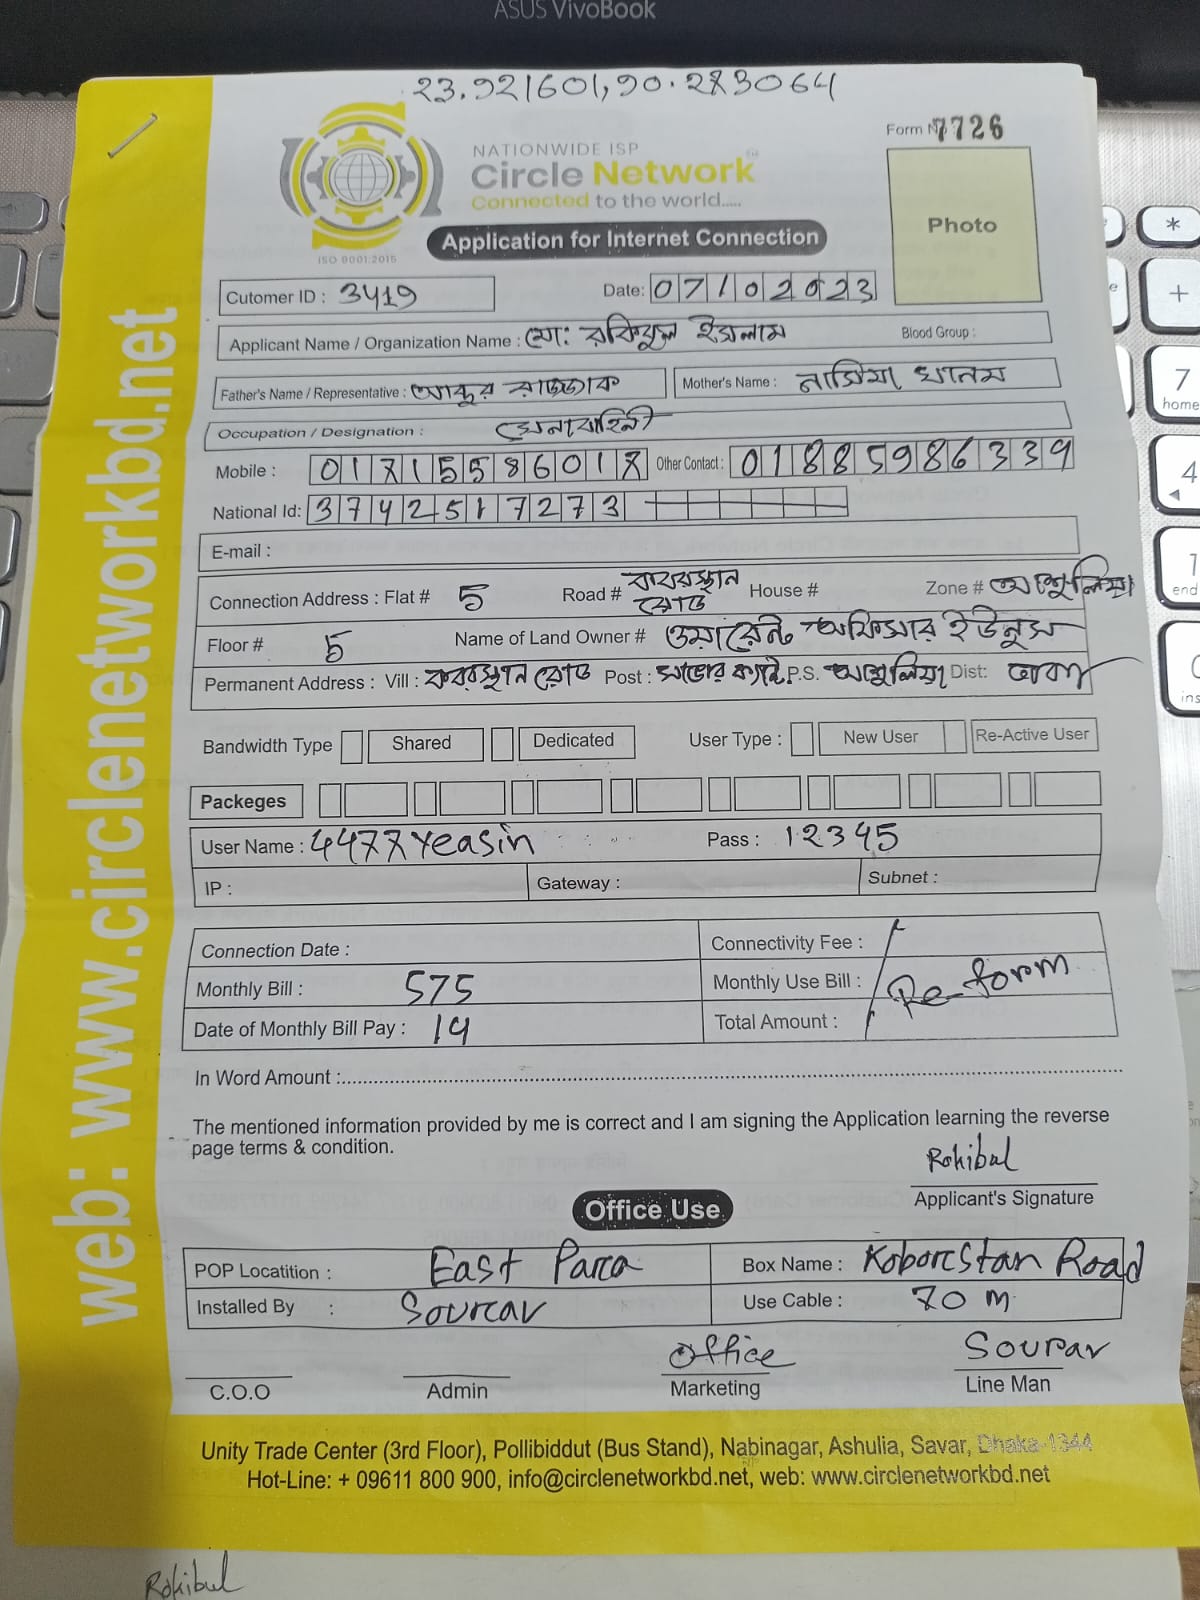 ASUS VivoBook
23.921601,90.283064
Form No 7726
NATIONWIDE ISP
Circle Network
Connected to the world.....
ISO 9001:2015
Photo
Application for Internet Connection
Cutomer ID : 3419 Date: 07/02023
Applicant Name / Organization Name : মো: রকিবুল ইসলাম Blood Group :
Father's Name / Representative : আব্দুর রাজ্জাক Mother's Name : নাসিমা খানম
Occupation / Designation : সেনাবাহিনী
Mobile : Other Contact : 01885986339
National Id: 3742517273
E-mail :
Connection Address : Flat # 5 Road # কবরস্থান রোড House # Zone # আশুলিয়া
Floor # 5 Name of Land Owner # ওয়ারেন্ট অফিসার ইউনুস
Permanent Address : Vill : কবরস্থান রোড Post : সাভার ক্যান্ট P.S. আশুলিয়া Dist: ঢাকা
Bandwidth Type Shared Dedicated User Type : New User Re-Active User
Packeges
User Name : 4477Yeasin Pass : 12345
IP : Gateway : Subnet :
Connection Date : Connectivity Fee :
Monthly Bill : 575 Monthly Use Bill : Re-form
Date of Monthly Bill Pay : 14 Total Amount :
In Word Amount :
The mentioned information provided by me is correct and I am signing the Application learning the reverse
page terms & condition.
Rokibul
Applicant's Signature
Office Use
POP Locatition : East Para Box Name : Koborstan Road
Installed By : Sourav Use Cable : 70 m
Office Sourav
C.O.O Admin Marketing Line Man
Unity Trade Center (3rd Floor), Pollibiddut (Bus Stand), Nabinagar, Ashulia, Savar, Dhaka-1344
Hot-Line: + 09611 800 900, info@circlenetworkbd.net, web: www.circlenetworkbd.net
web: www.circlenetworkbd.net
Rokibul